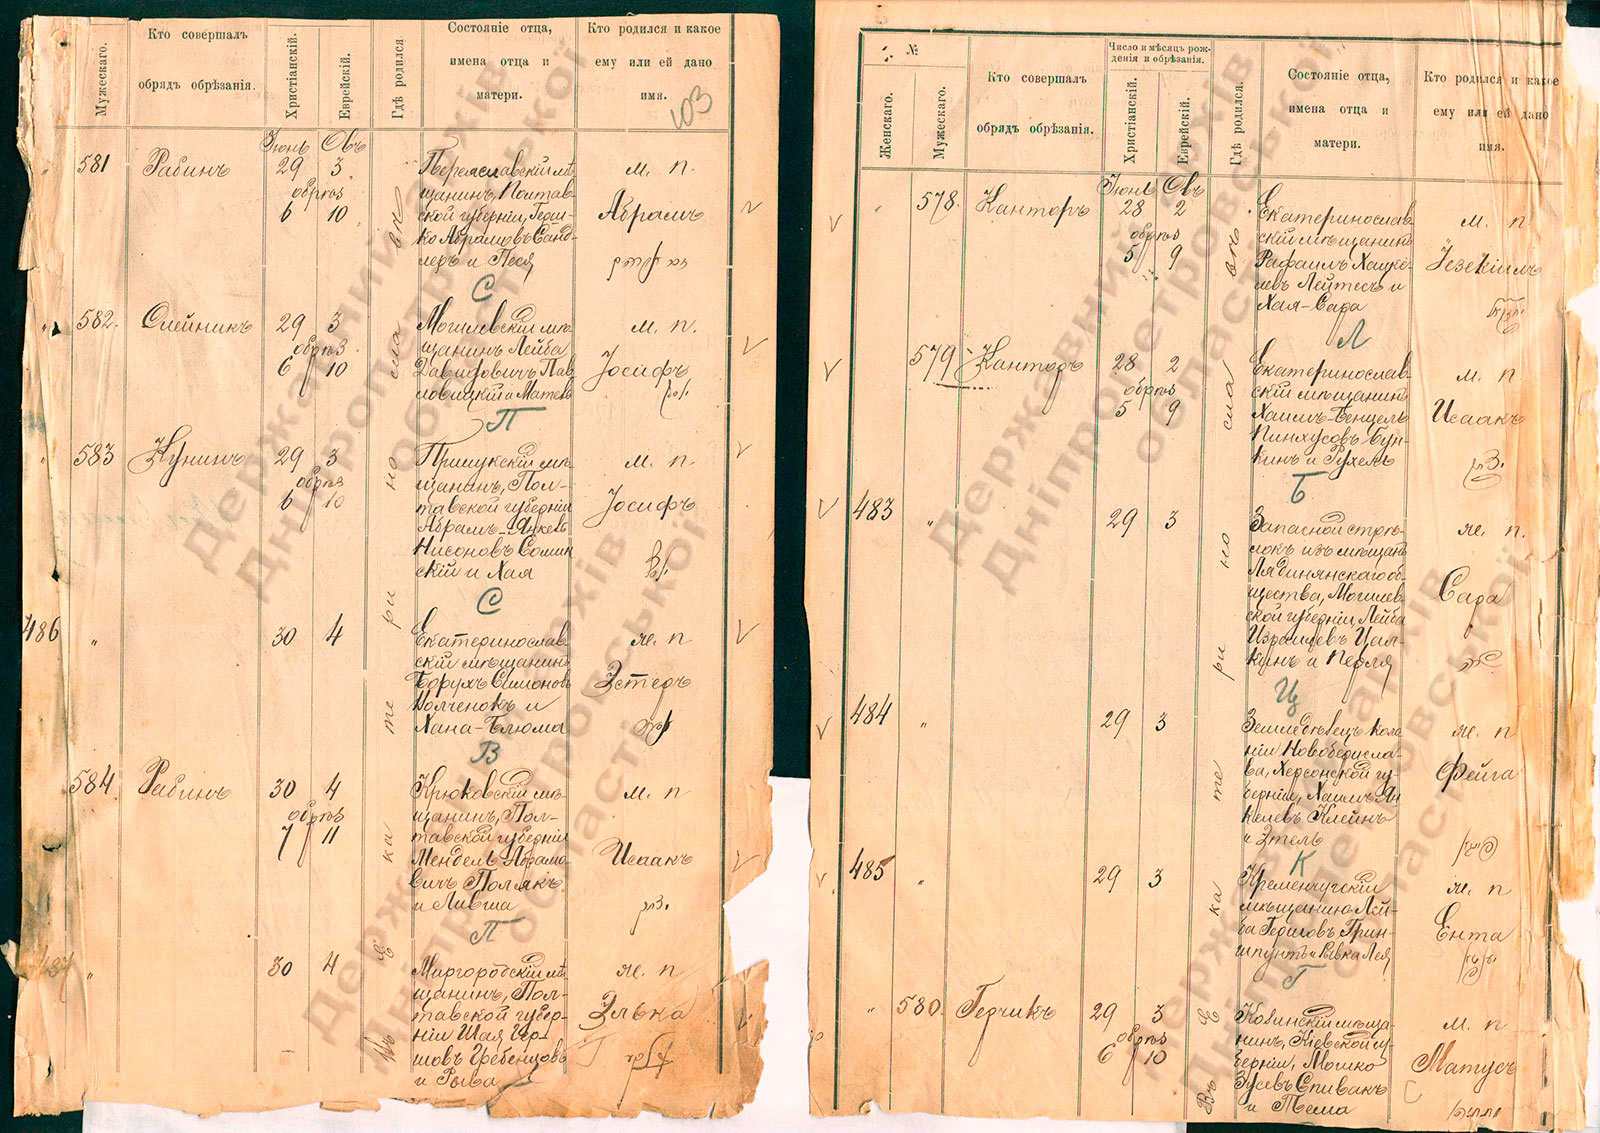 Мужескаго.
Кто совершалъ
обрядъ обрѣзанія.
Христіанскій.
Еврейскій.
Гдѣ родился
Состояніе отца,
имена отца и
матери.
Кто родился и какое
ему или ей дано
имя.
103
Іюнь Овъ
581 Рабинъ 29 3
обрѣз
6 10
Переяславскій мѣ-
щанинъ, Полтав-
ской губерніи, Герш-
ко Абрамовъ Санд-
леръ и Песя
м. п.
Абрамъ
С
582. Олейникъ 29 3
обрѣз
6 10
Могилевскій мѣ-
щанинъ Лейба
Давидовичъ Пав-
ловицкій и
м. п.
Іосифъ
П
583 Кунинъ 29 3
обрѣз
6 10
Прилукскій мѣ-
щанинъ, Пол-
тавской губерніи
Абрамъ-Янкель
Нисоновъ Сомин
скій и Хая
м. п.
Іосифъ
С
486 " 30 4
Екатеринослав-
скій мѣщанинъ
Борухъ Симоновъ
Волченокъ и
Хана-Блюма
же. п
Эстеръ
В
584 Рабинъ 30 4
обрѣз
7 11
Крюковскій мѣ-
щанинъ, Пол-
тавской губерніи
Мендель Абрамо-
вичъ Полякъ
и Лившa
м. п
Исаакъ
П
487 " 30 4
Миргородскій мѣ-
щанинъ, Пол-
тавской губер-
ніи Шая Гер-
шовъ Гребенцовъ
и Рыва
же. п
Элька
Г
Въ Екатеринославѣ
№
Женскаго.
Мужескаго.
Кто совершалъ
обрядъ обрѣзанія.
Число и мѣсяцъ рож-
денія и обрѣзанія.
Христіанскій.
Еврейскій.
Гдѣ родился.
Состояніе отца,
имена отца и
матери.
Кто родился и какое
ему или ей дано
имя.
Іюнь Овъ
" 578. Канторъ 28 2
обрѣз
5 9
Екатеринослав-
скій мѣщанинъ
Рафаилъ Хацке-
левъ Лейтесъ и
Хая-Сара
м. п
Іезекіиль
Л
579 Канторъ 28 2
обрѣз
5 9
Екатеринослав-
скій мѣщанинъ
Хаимъ-Бенцель
Пинхусовъ Бун-
кинъ и Рухель
м. п
Исаакъ
Б
483 " 29 3
Запасной стрѣ-
локъ изъ мѣщанъ
Лядинянскаго об-
щества, Могилев-
ской губерніи, Лейба
Израилевъ Цал-
кинъ и Перля
же. п.
Сара
Ц
484 " 29 3
Земледѣлецъ коло-
ніи Новоберисла-
ва, Херсонской гу-
берніи, Хаимъ Ян-
келевъ Клейнъ
и Этель
же. п
Фейга
К
485 " 29 3
Кременчугскій
мѣщанинъ Лей-
ба Гершовъ Грин-
шпунтъ и Ривка Лея
же. п
Ента
Г
" 580. Герчикъ 29 3
обрѣз
6 10
мѣща-
нинъ, Кіевской гу-
берніи, Мошко
Зусевъ Спивакъ
и Тема
м. п
Матусъ
С
Въ Екатеринославѣ
Державний архів
Дніпропетровської
області